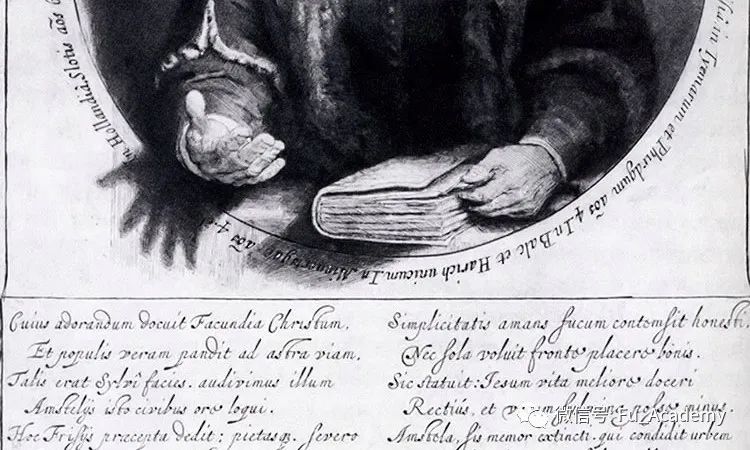 in Tyenarum et Phirdgum aōs 4. In Balc et Harich unicum. In aōs 4.
n Hollandiâ. Slotis aōs 6
Cuius adorandum docuit Facundia Christum,
Et populis veram pandit ad astra viam,
Talis erat Sylvî facies. audivimus illum
Amstelijs isto civibus ore loqui.
Hoc Frisijs præcepta dedit; pietasq. severo
Simplicitatis amans fucum contemsit honesti,
Nec sola voluit fronte placere bonis.
Sic statuit: Jesum vita meliore doceri
Rectius, et vocum minus.
Amstela, sis memor extincti. qui condidit urbem
微信号: FuZAcademy